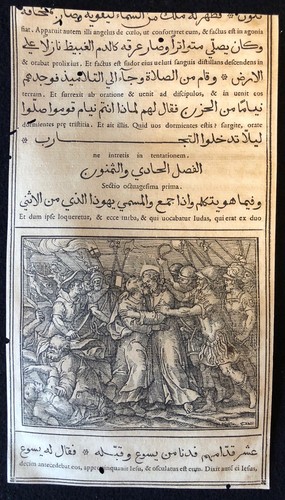 فظهر له ملاك من السماء ليقويه وصار
fiat. Apparuit autem illi angelus de cœlo, ut confortaret eum, & factus est in agonia
وكان يصلي متواترا وصار عرقه كالدم الغبيط نازلا علي
& orabat prolixius. Et factus est sudor eius ueluti sanguis distillans descendens in
الارض * وقام من الصلاة وجآ الي التلاميذ فوجدهم
terram. Et surrexit ab oratione & uenit ad discipulos, & inuenit eos
نياما من الحزن فقال لهم لماذا انتم نيام قوموا صلوا
dormientes præ tristitia. Et ait illis. Quid uos dormientes estis? surgite, orate
ليلا تدخلوا التجارب *
ne intretis in tentationem.
الفصل الحادي والثمنون
Sectio octuagesima prima.
وفيما هو يتكلم واذا جمع والمسمي يهوذا الذي من الاثني
Et dum ipse loqueretur, & ecce turba, & qui uocabatur Iudas, qui erat ex duo
عشر قدامهم فدنا من يسوع وقبله * فقال له يسوع
decim antecedebat eos, appropinquauit Iesu, & osculatus est eum. Dixit autē ei Iesus,